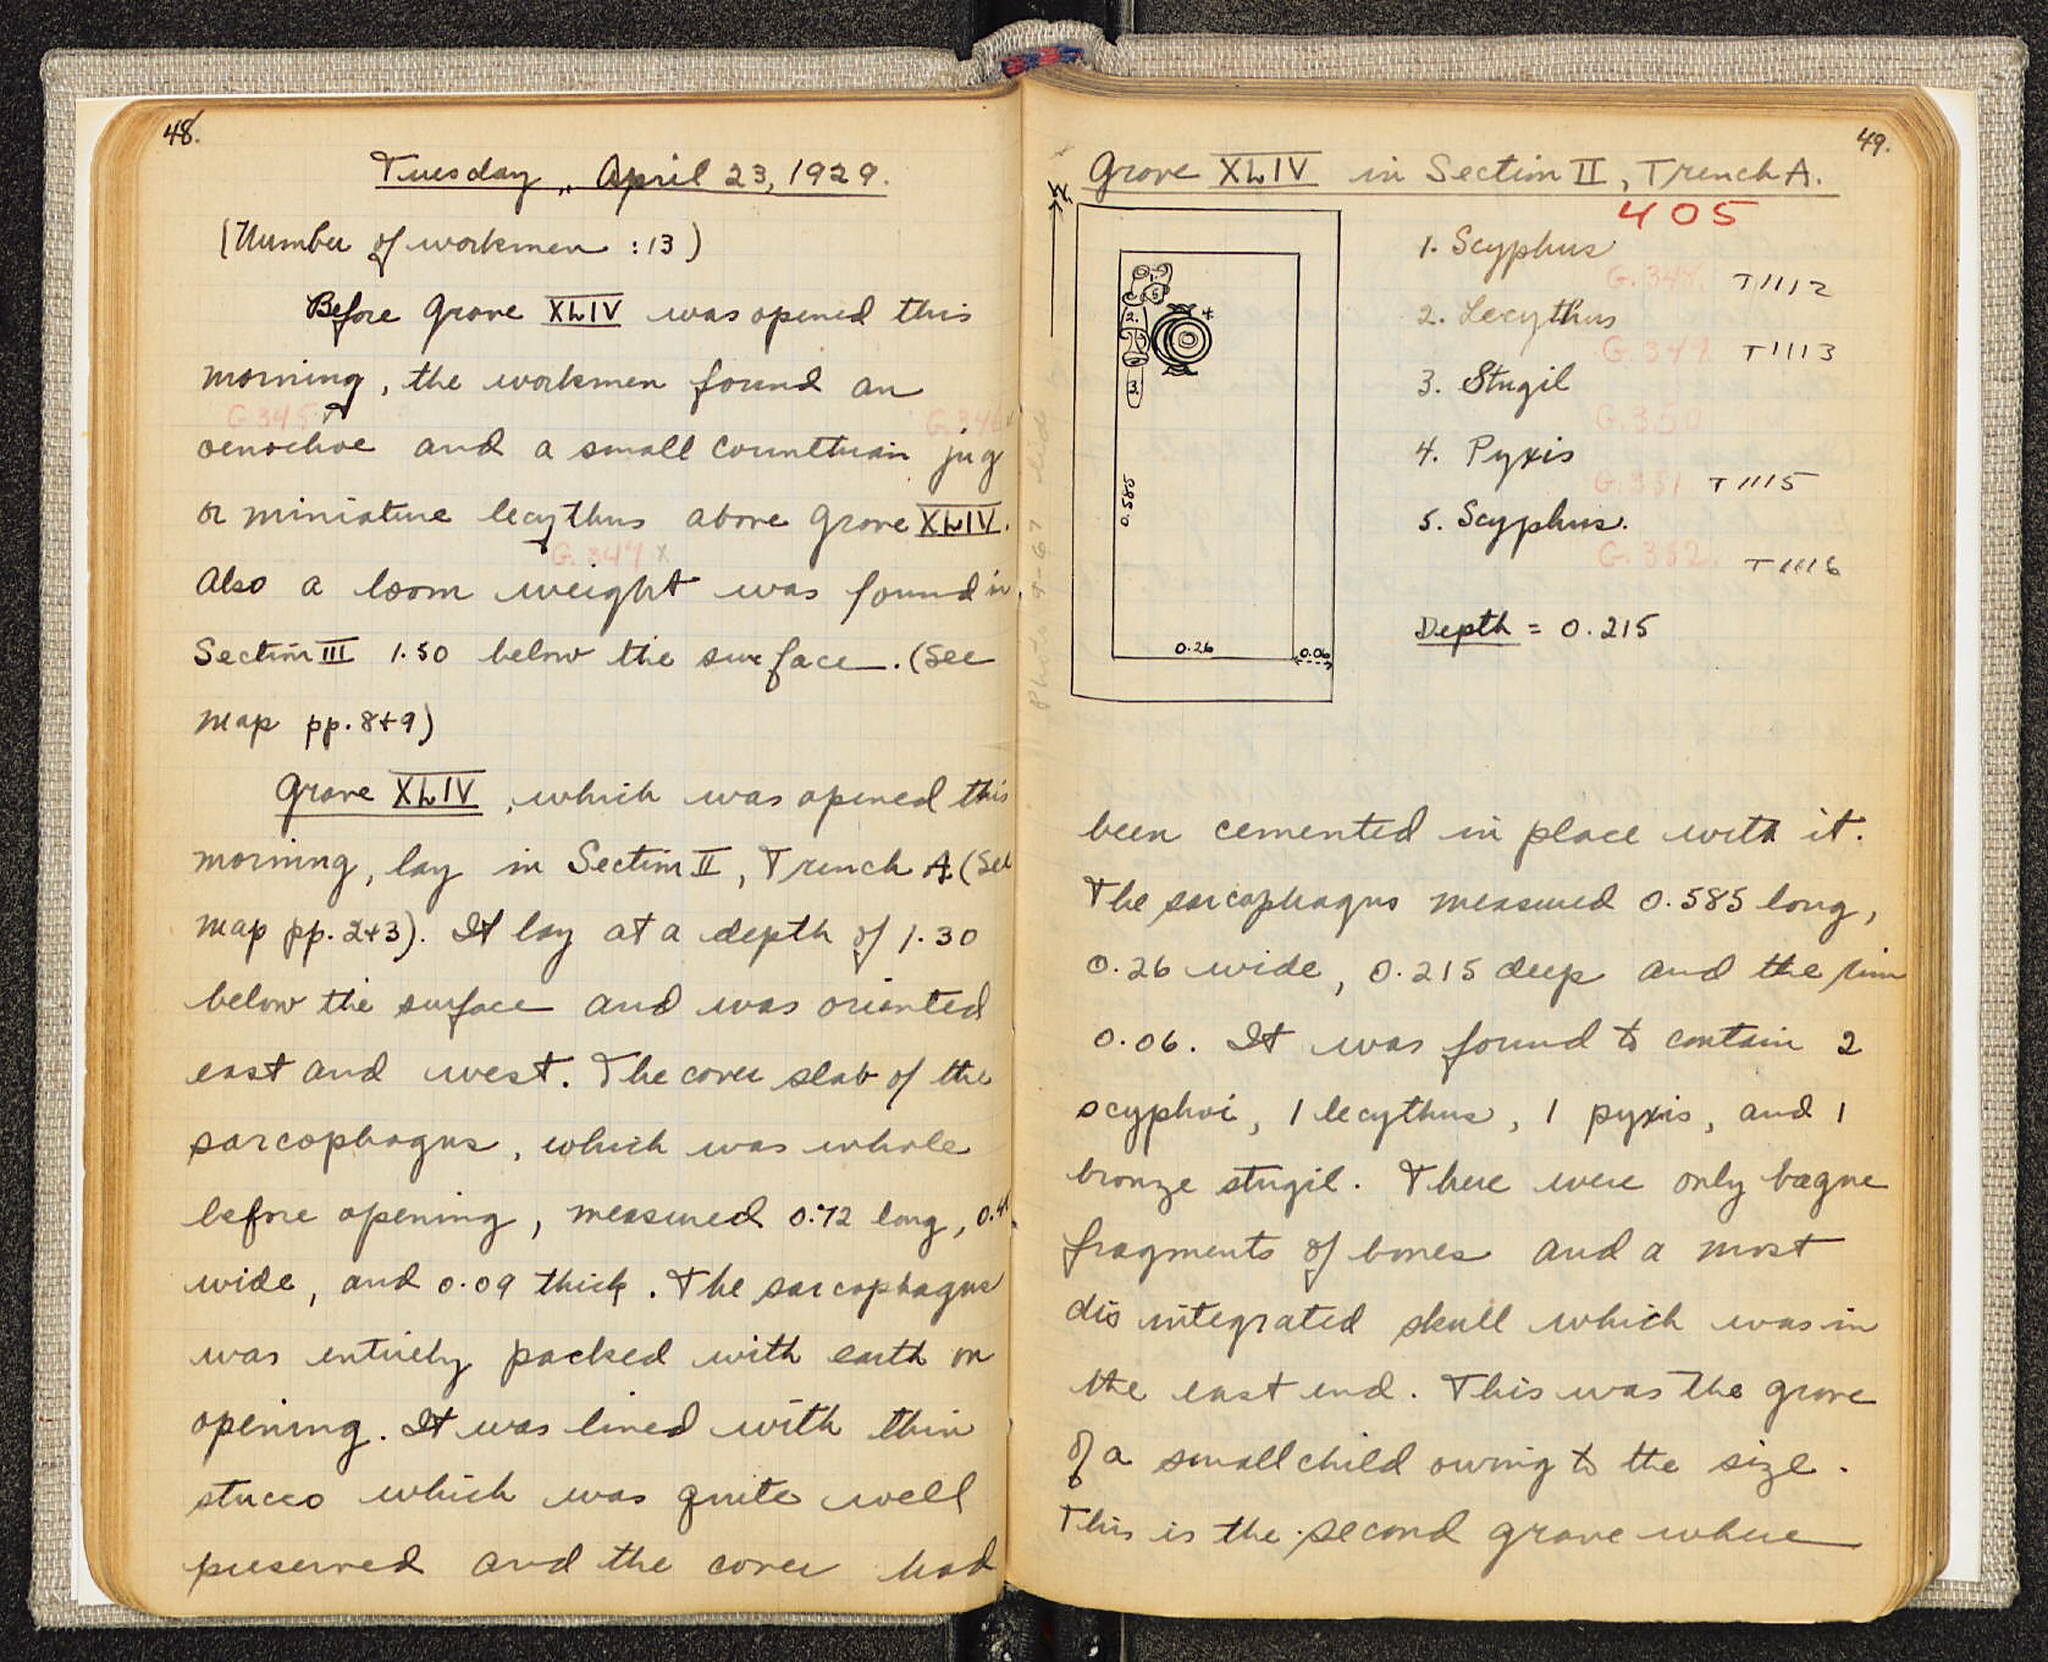 48.
Tuesday, April 23, 1929.
(Number of workmen : 13)
Before Grave XLIV was opened this
morning, the workmen found an
G.345
G.346
oenochoe and a small Corinthian jug
or miniature lecythus above Grave XLIV.
G.347 x
Also a loom weight was found in
Section III 1.50 below the surface. (See
map pp. 8+9)
Grave XLIV, which was opened this
morning, lay in Section II, Trench A (See
map pp. 2+3). It lay at a depth of 1.30
below the surface and was oriented
east and west. The cover slab of the
sarcophagus, which was whole
before opening, measured 0.72 long,
wide, and 0.09 thick. The sarcophagus
was entirely packed with earth on
opening. It was lined with thin
stucco which was quite well
preserved and the cover had
49.
Grave XLIV in Section II, Trench A.
405
N.
1. Scyphus
G.348. T1112
2. Lecythus
G.349 T1113
3. Strigil
G.350
4. Pyxis
G.351 T1115
5. Scyphus.
G.352. T1116
Depth = 0.215
1
5
2.
4
3
0.585
0.26
0.06
been cemented in place with it.
The sarcophagus measured 0.585 long,
0.26 wide, 0.215 deep and the rim
0.06. It was found to contain 2
scyphoi, 1 lecythus, 1 pyxis, and 1
bronze strigil. There were only vague
fragments of bones and a most
disintegrated skull which was in
the east end. This was the grave
of a small child owing to the size.
This is the second grave where